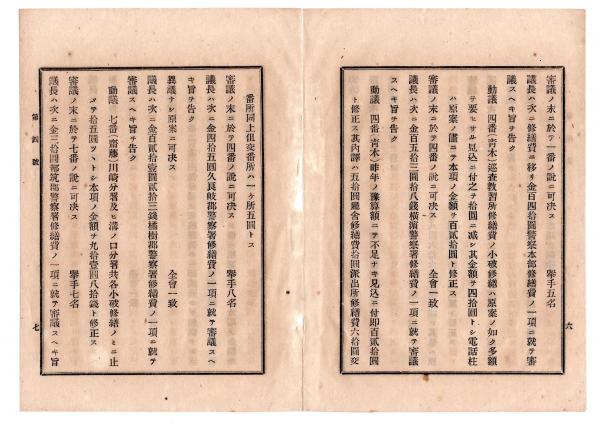 審議ノ末ニ於テ一番ノ說ニ可决ス 擧手五名
議長ハ次ニ修繕費ニ移リ金百四拾圓警察本部修繕費ノ一項ニ就テ審
議スヘキ旨ヲ告ク
動議 四番(靑木)巡査敎習所修繕費ノ小破修繕ハ原案ノ如ク多額
ヲ要セサル見込ニ付之ヲ拾圓ニ减シ其金額ヲ四拾圓トシ電話柱
ハ原案ノ儘ニテ本項ノ金額ヲ百貳拾圓ト修正ス
審議ノ末ニ於テ四番ノ說ニ可决ス 全會一致
議長ハ次ニ金百五拾三圓拾八錢橫濱警察署修繕費ノ一項ニ就テ審議
スヘキ旨ヲ告ク
動議 四番(靑木)昨年ノ豫算額ニテ不足ナキ見込ニ付即百貳拾圓
ト修正ス其內譯ハ五拾圓廳舍修繕費拾圓派出所修繕費六拾圓交
六
番所同上但交番所ハ一ケ所五圓トス
審議ノ末ニ於テ四番ノ說ニ可决ス 擧手八名
議長ハ次ニ金四拾五圓久良岐郡警察署修繕費ノ一項ニ就テ審議スヘ
キ旨ヲ告ク
異議ナシ原案ニ可决ス 全會一致
議長ハ次ニ金百貳拾壹圓貳拾三錢橘樹郡警察署修繕費ノ一項ニ就テ
審議スヘキ旨ヲ告ク
動議 七番(齋藤)川崎分署及ヒ溝ノ口分署共各小破修繕ノミニ止
メテ拾五圓ツヽトシ本項ノ金額ヲ九拾壹圓八拾錢ト修正ス
審議ノ末ニ於テ七番ノ說ニ可决ス 擧手七名
議長ハ次ニ金三拾圓都筑郡警察署修繕費ノ一項ニ就テ審議スヘキ旨
第四號
七